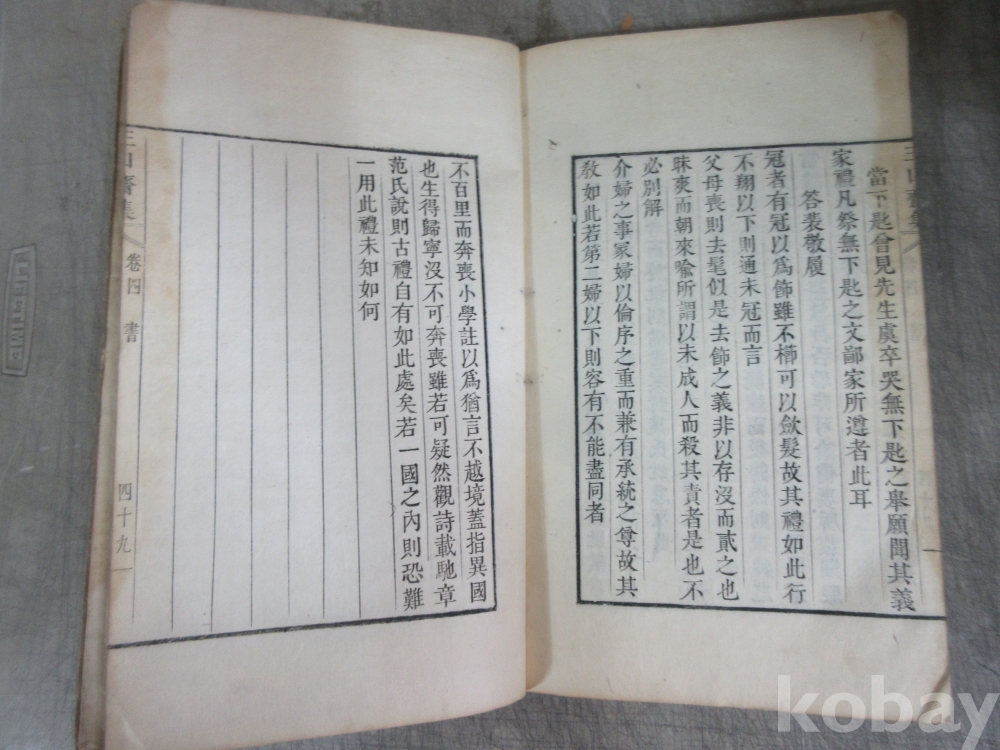 當下匙會見先生虞卒哭無下匙之舉願聞其義
家禮凡祭無下匙之文鄙家所遵者此耳
答裴敬履
冠者有冠以爲飾雖不櫛可以斂髮故其禮如此行
不翔以下則通未冠而言
父母喪則去髦似是去飾之義非以存沒而貳之也
昧爽而朝來喩所謂以未成人而殺其責者是也不
必別解
介婦之事冢婦以倫序之重而兼有承統之尊故其
敎如此若第二婦以下則容有不能盡同者
不百里而奔喪小學註以爲猶言不越境蓋指異國
也生得歸寧沒不可奔喪雖若可疑然觀詩載馳章
范氏說則古禮自有如此處矣若一國之內則恐難
一用此禮未知如何
山齋集
卷四
書
四十九
kobay